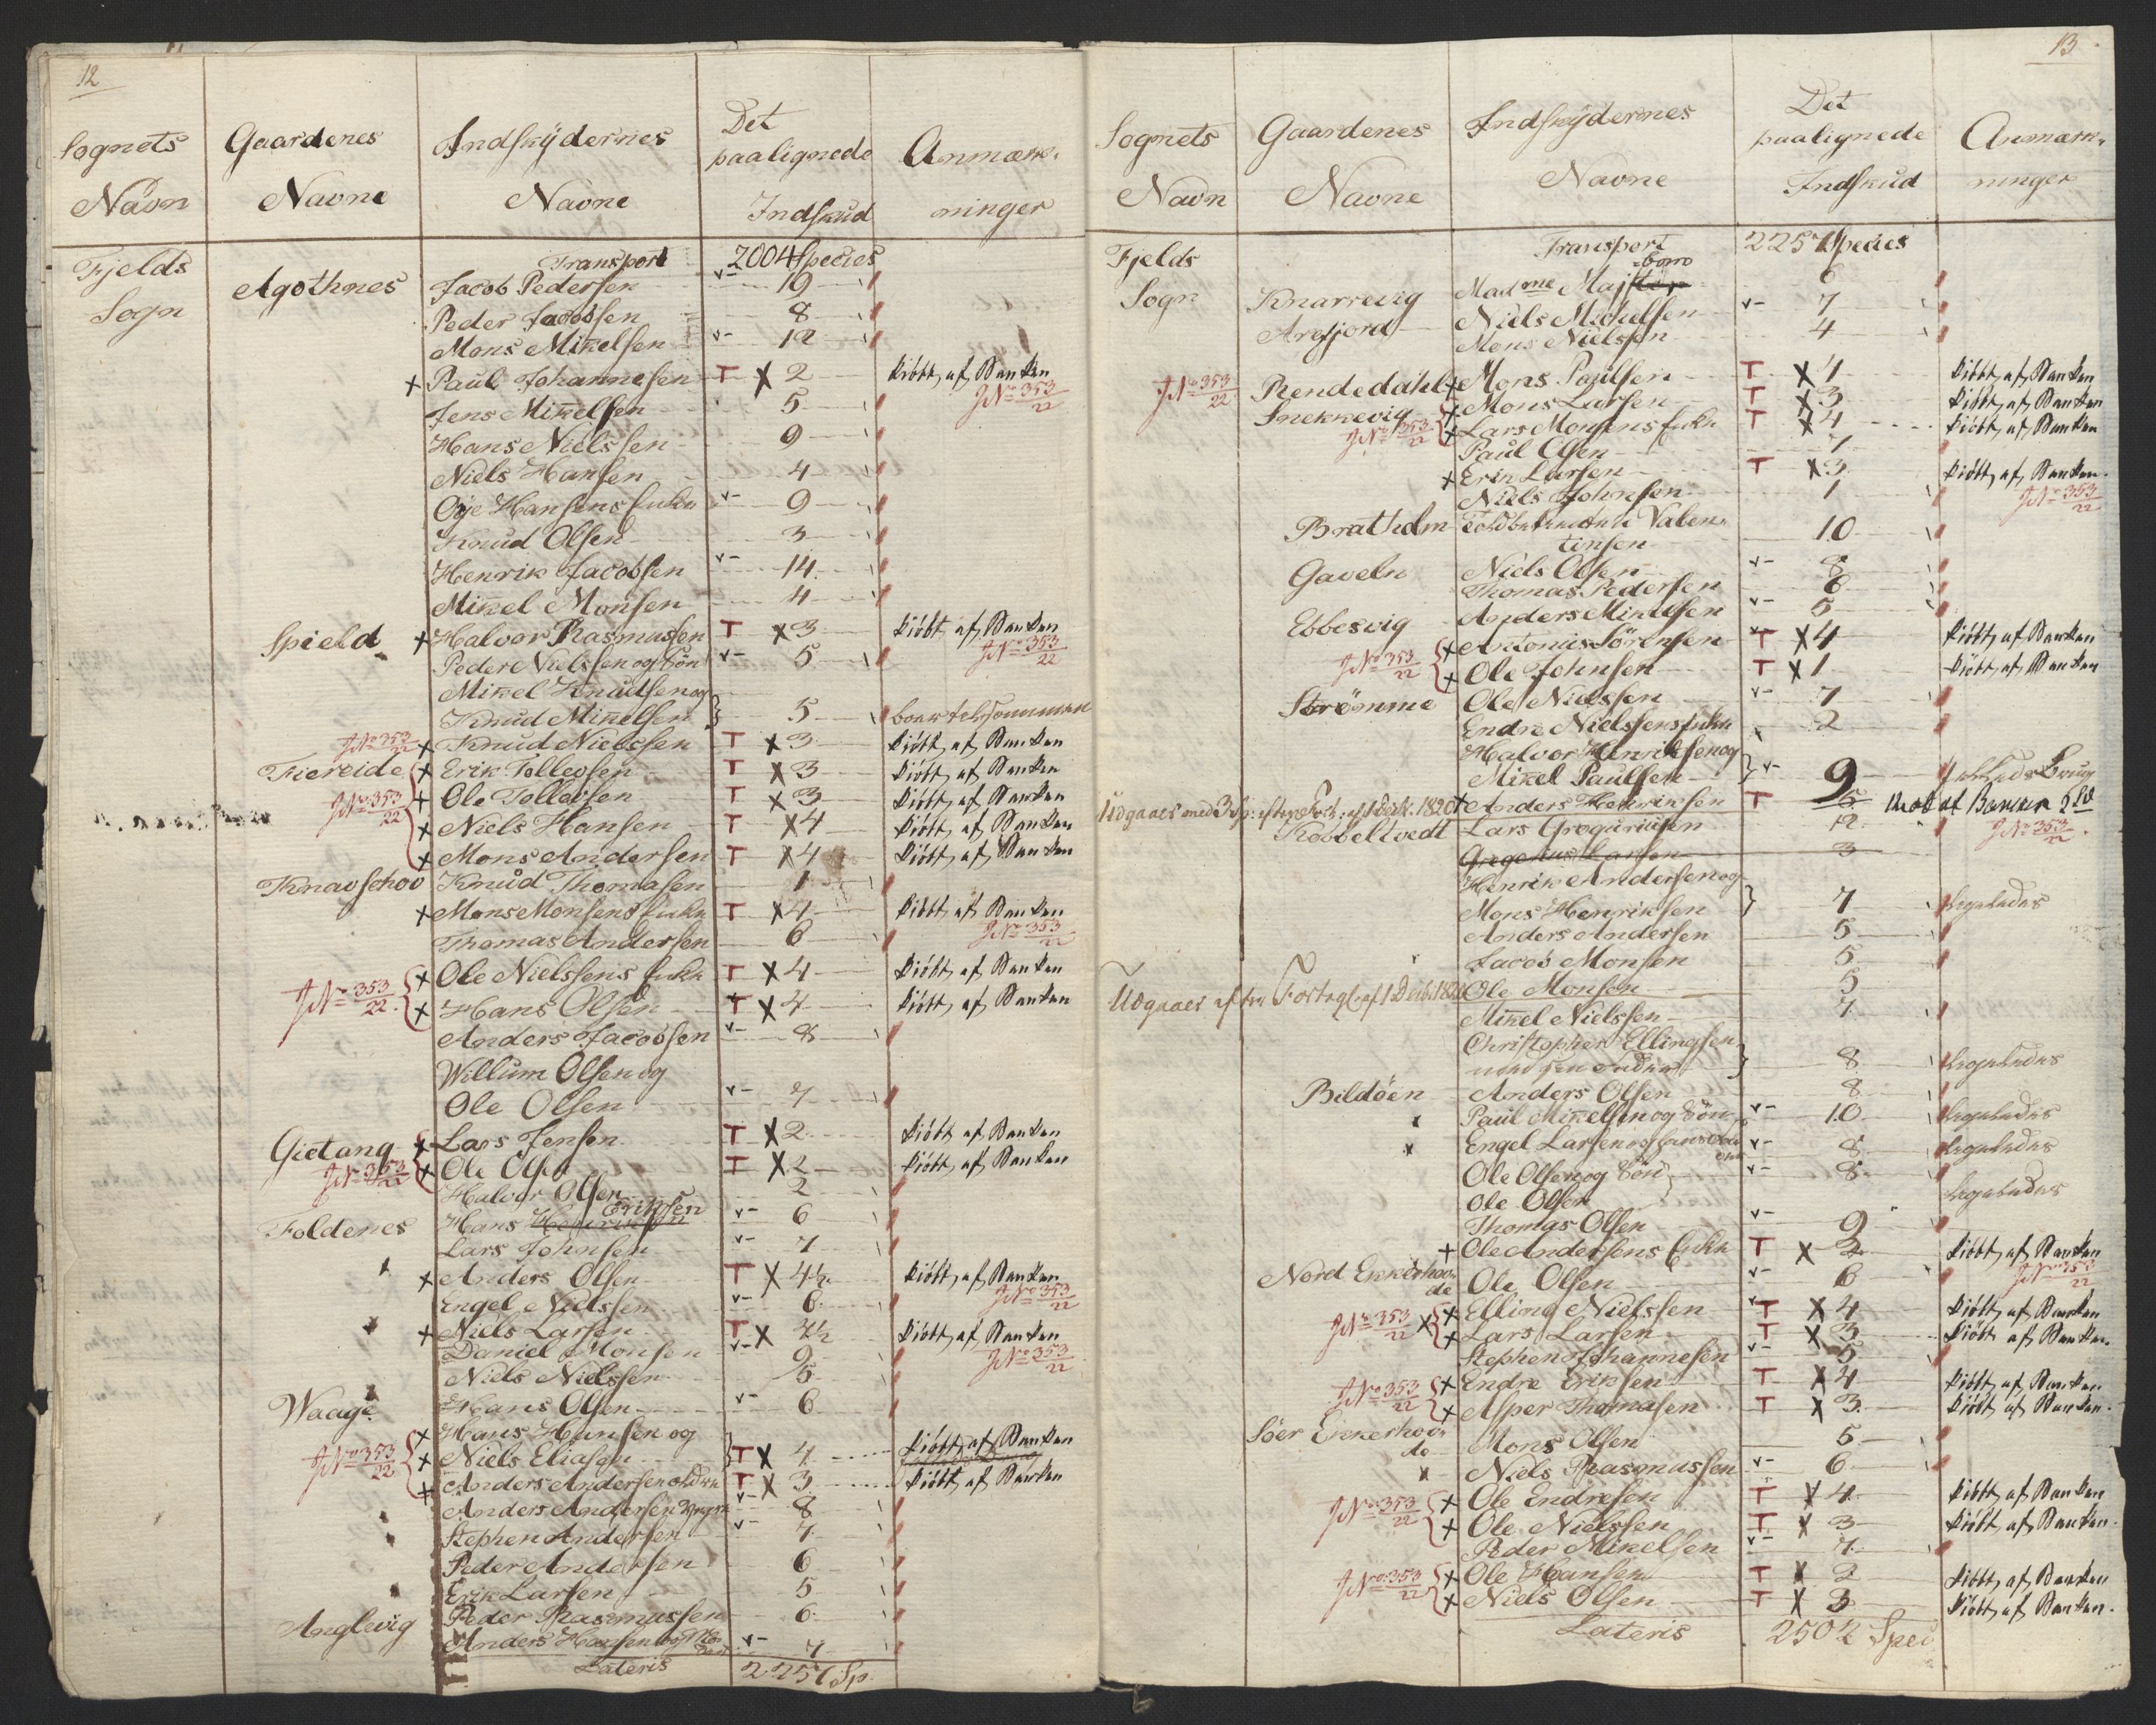 12
Sognets Navn | Gaardenes Navne | Indskÿdernes Navne | Det paalignede Indskud | Anmærkninger
Fjelds Sogn | Transport | 2004 Species
Agothnes | Jacob Pedersen | 19
Peder Jacobsen | 8
Mons Mikelsen | 12
Paul Johannesen | T X 2 | kiöbt af Banken JNo 353/22
Jens Mikelsen | 5
Hans Nielssen | 9
Niels Hansen | 4
Hansens Enke | 9
Knud Olsen | 3
Henrik Jacobsen | 14
Mikel Monsen | 4
Spield | Halvor Rasmussen | T X 3 | kiöbt af Banken JNo 353/22
Peder Nielssen og Sön | 5
Mikel Knudsen og
Knud Mikelsen | 5
JNo 353/22 | Knud Nielssen | T X 3 | kiöbt af Banken
Fiereide | Erik Tollevsen | T X 3 | kiöbt af Banken
JNo 353/22 | Ole Tollevsen | T X 3 | kiöbt af Banken
Niels Hansen | T X 4 | kiöbt af Banken
Mons Andersen | T X 4 | kiöbt af Banken
Knavschov | Knud Thomasen | 1
Mons Monsens Enke | T X 4 | kiöbt af Banken JNo 353/22
Thomas Andersen | 6
JNo 353/22 | Ole Nielssens Enke | T X 4 | kiöbt af Banken
Hans Olsen | T X 4 | kiöbt af Banken
Anders Jacobsen | 8
Willum Olsen og
Ole Olsen | 7
Gietang | Lars Jensen | T X 2 | kiöbt af Banken
JNo 353/22 | Ole Olsen | T X 2 | kiöbt af Banken
Halvor Olsen | 2
Foldenes | Hans Eriksen | 6
Lars Johnsen | 7
Anders Olsen | T X 4½ | kiöbt af Banken JNo 353/22
Engel Nielssen | 6
Niels Larsen | T X 4½ | kiöbt af Banken JNo 353/22
Daniel Monsen | 9
Niels Nielssen | 5
Waage | Hans Olsen | 6
Hans Hansen og
JNo 353/22 | Niels Eliasen | T X 4 | kiöbt af Banken
Anders Andersen ældre | T X 3 | kiöbt af Banken
Anders Andersen yngre | 8
Stephen Andersen | 7
Peder Andersen | 6
Erik Larsen | 5
Anglevig | Peder Rasmussen | 6
Anders Hansen og | 7
Lateris | 2257 Sp.
13
Sognets Navn | Gaardenes Navne | Indskÿdernes Navne | Det paalignede Indskud | Anmærkninger
Fjelds Sogn | Transport | 2257 Species
Knarrevig | Madme Maj | 6
Arefjord | Niels Michelsen | 7
Mons Nielssen | 4
JNo 353/22 | Rendedahl | Mons Paulsen | T X 1 | kiöbt af Banken
Snekkevig | Mons Larsen | T X 3 | kiöbt af Banken
JNo 353/22 | Lars Monsens Enke | T X 4 | kiöbt af Banken
Paul Olsen | 7
Erik Larsen | T X 3 | kiöbt af Banken JNo 353/22
Niels Johnsen | 1
Bratholm | Valentinsen | 10
Gaveln | Niels Olsen | 8
Thomas Pedersen | 8
Ebbesvig | Anders Mikelsen | 5
JNo 353/22 | Antonius Sörensen | T X 4 | kiöbt af Banken
Ole Johnsen | T X 1 | kiöbt af Banken
Strömme | Ole Nielssen | 7
Endre Nielssens Enke | 2
Halvor Henriksen og
Mikel Paulsen | 9
Udgaaer med 3 Sp: efter | 1820 | Anders Henriksen | T 5 | kiöbt af Banken JNo 353/22
Kobbeltvedt | Lars Gregoriusen | 12
Gregorius Larsen | 3
Henrik Andersen og
Mons Henriksen | 7 | ligeledes
Anders Andersen | 5
Jacob Monsen | 5
Udgaaer efter | Ole Monsen | 5
Mikel Nielssen | 7
Christopher Ellingsen | 8 | ligeledes
Bildöen | Anders Olsen | 8
Paul Mikelsen og Sön | 10 | ligeledes
Engel Larsen og | 8 | ligeledes
Ole Olsen og Sön | 8
Ole Olsen | ligeledes
Thomas Olsen | 9
Ole Andersens Enke | T X 2 | kiöbt af Banken JNo 353/22
Nord Ekkerhovde | Ole Olsen | 6
JNo 353/22 | Elling Nielssen | T X 4 | kiöbt af Banken
Lars Larsen | T X 3 | kiöbt af Banken
Stephen Johannesen | 5
JNo 353/22 | Endre Eriksen | T X 4 | kiöbt af Banken
Asper Thomasen | T X 3 | kiöbt af Banken
Söer Ekkerhovde | Mons Olsen | 5
Niels Rasmussen | 6
JNo 353/22 | Ole Endresen | T X 4 | kiöbt af Banken
Ole Nielssen | T X 3 | kiöbt af Banken
Peder Mikelsen | 7
JNo 353/22 | Ole Hansen | T X 2 | kiöbt af Banken
Niels Olsen | T X 3 | kiöbt af Banken
Lateris | 2502 Spec